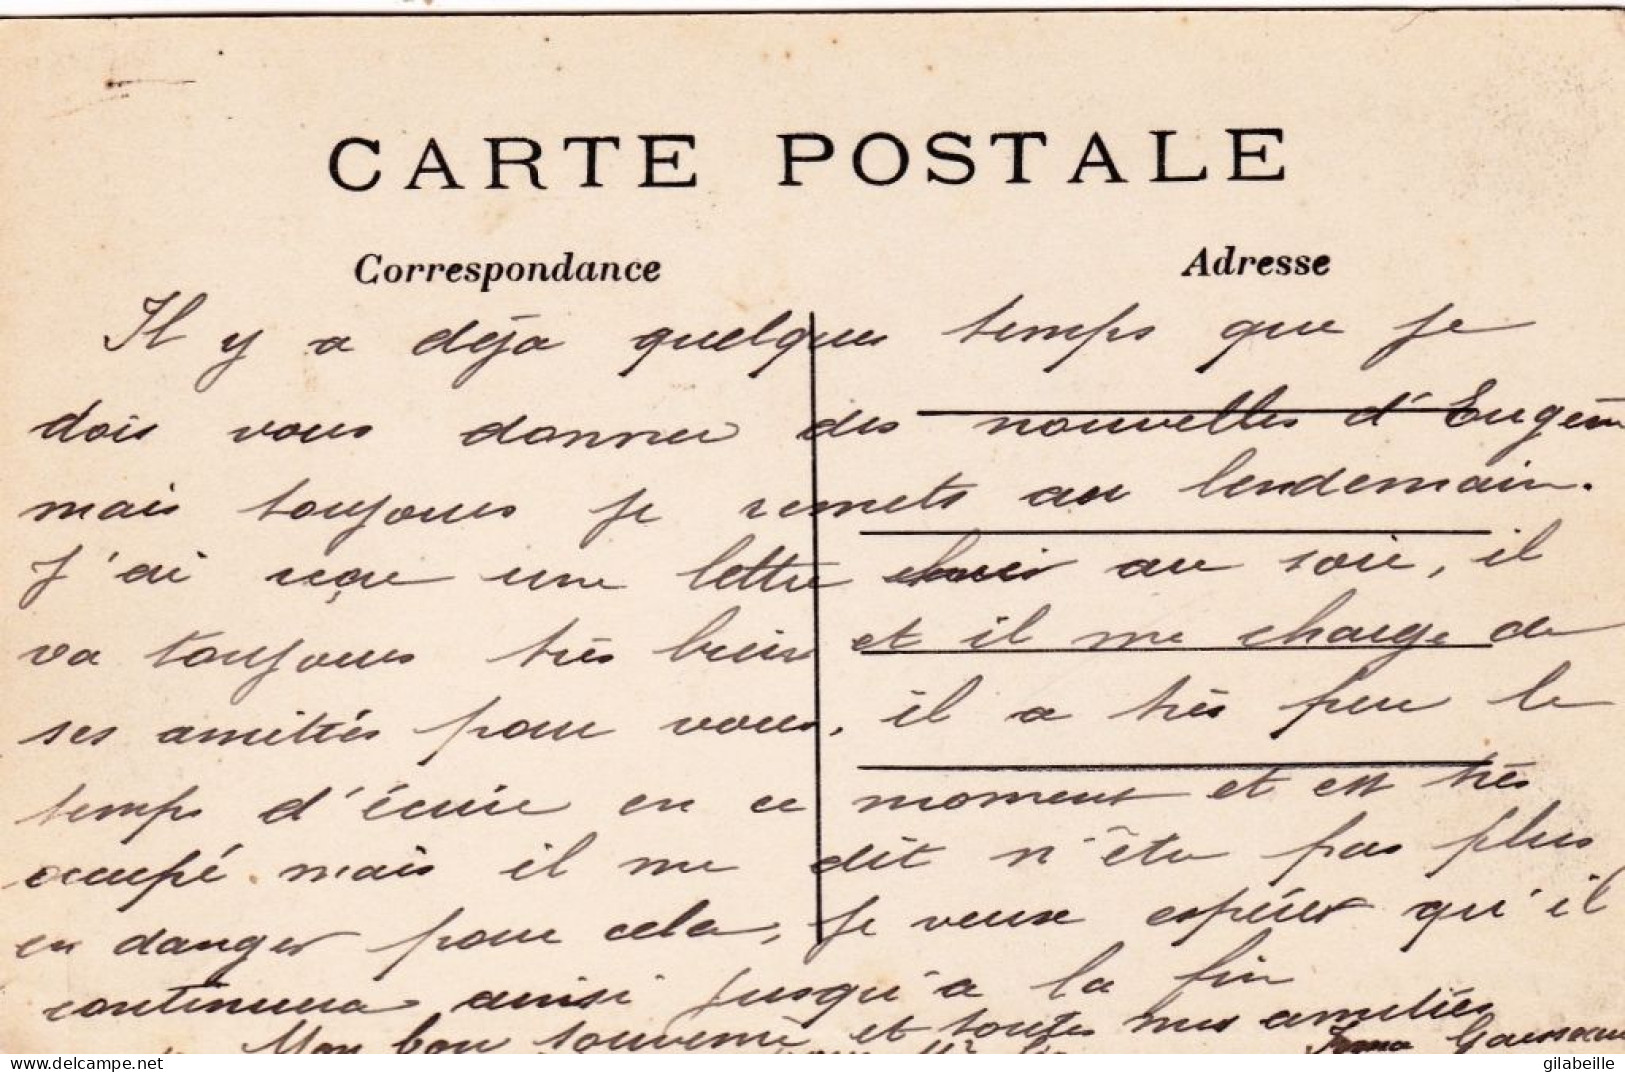 CARTE POSTALE
Correspondance
Adresse
Il y a déja quelques temps que je
dois vous donner des nouvelles d'Eugèn
mais toujours je remets au lendemain.
J'ai reçu une lettre au soir, il
va toujours très bien et il me charge de
ses amitiés pour vous, il a très peu le
temps d'écrire en ce moment et est très
occupé. mais il me dit n'être pas plus
en danger pour cela, je veux espérer qu'il
continuera ainsi jusqu'à la fin
Mon bon souvenir et toutes mes amitiés
Irma
delcampe.net
gilabeille